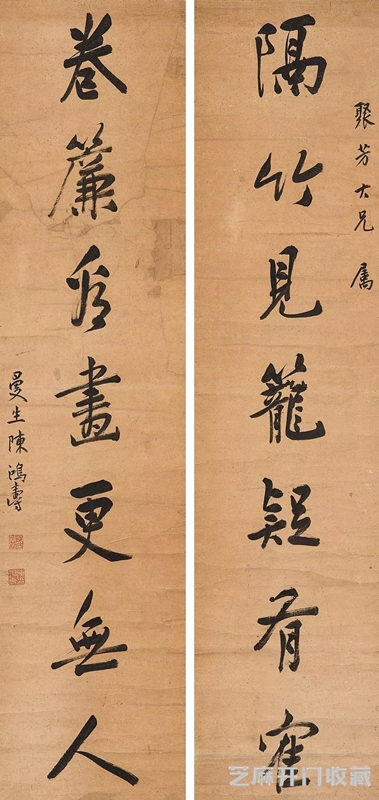 聚芳大兄属
隔竹見籠疑有寉
卷簾看畫更無人
曼生陳鴻壽
芝麻开门收藏